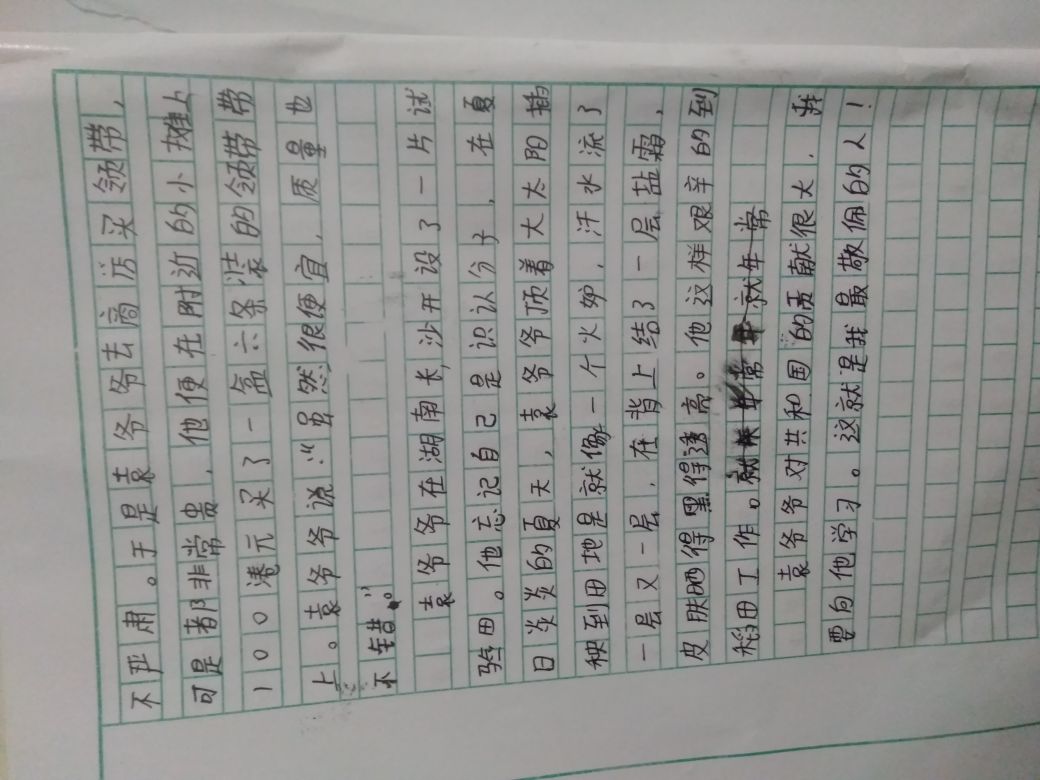 不严肃。于是袁爷爷去商店买领带，
可是都非常贵，他便在附近的小摊上
100港元买了一盒六条装的领带带
上。袁爷爷说：“虽然很便宜，质量也
不错。”
袁爷爷在湖南长沙开设了一片试
验田。他忘记自己是识认分子，在夏
日炎炎的夏天，袁爷爷顶着大太阳插
秧到田地是就像一个火炉，汗水流了
一层又一层，在背上结了一层盐霜，
皮肤晒得黑得透亮。他这样艰辛的到
稻田工作。
袁爷爷对共和国的贡献很大，我
要向他学习。这就是我最敬佩的人！